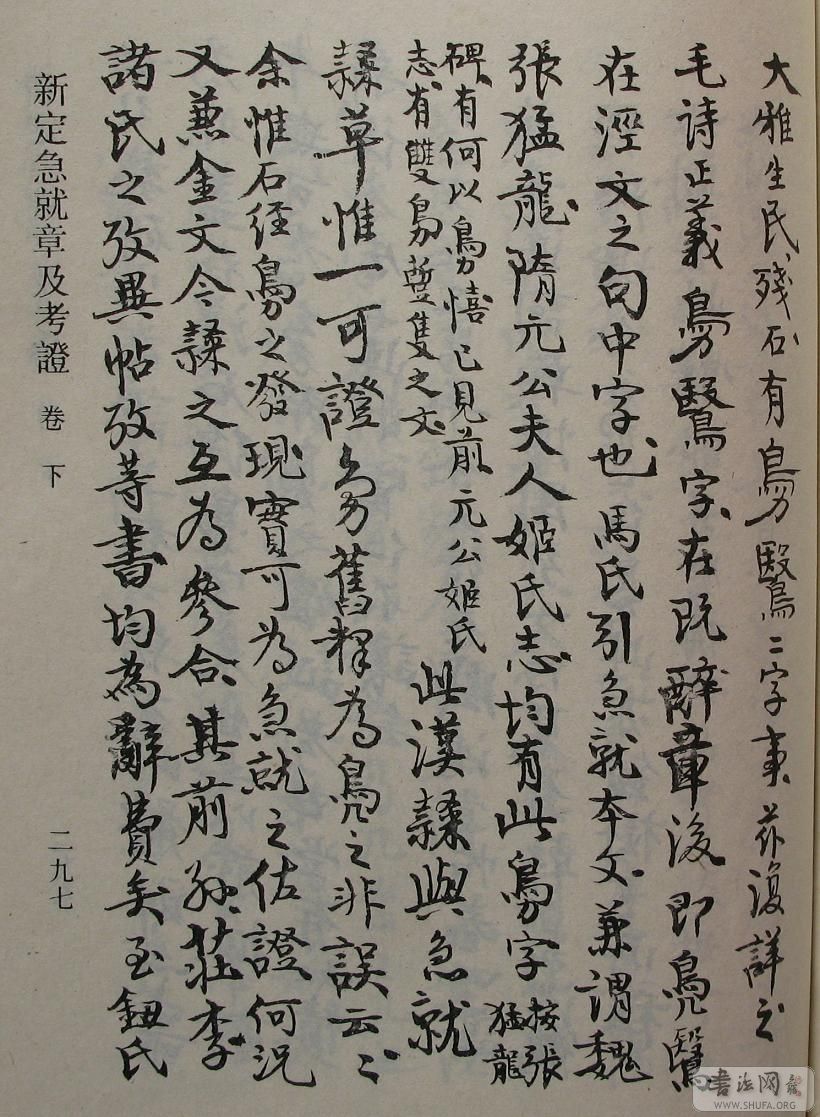 大雅生民殘石有鷖二字事茲復詳之
毛詩正義鷖字在既醉章後即鳧鷖
在涇文之句中字也馬氏引急就本文兼謂魏
張猛龍隋元公夫人姬氏志均有此字
按張
猛龍
碑有何以憘已見前元公姬氏
志有雙隻之文
此漢隸與急就
隸草惟一可證舊釋為鳧之非誤云〻
余惟石经之發現實可為急就之佐證何況
又兼金文今隸之互為參合其前孫莊李
諸氏之攷異帖攷等書均為辭費矣至鈕氏
新定急就章及考證 卷 下
二九七
书法网
WWW.SHUFA.ORG